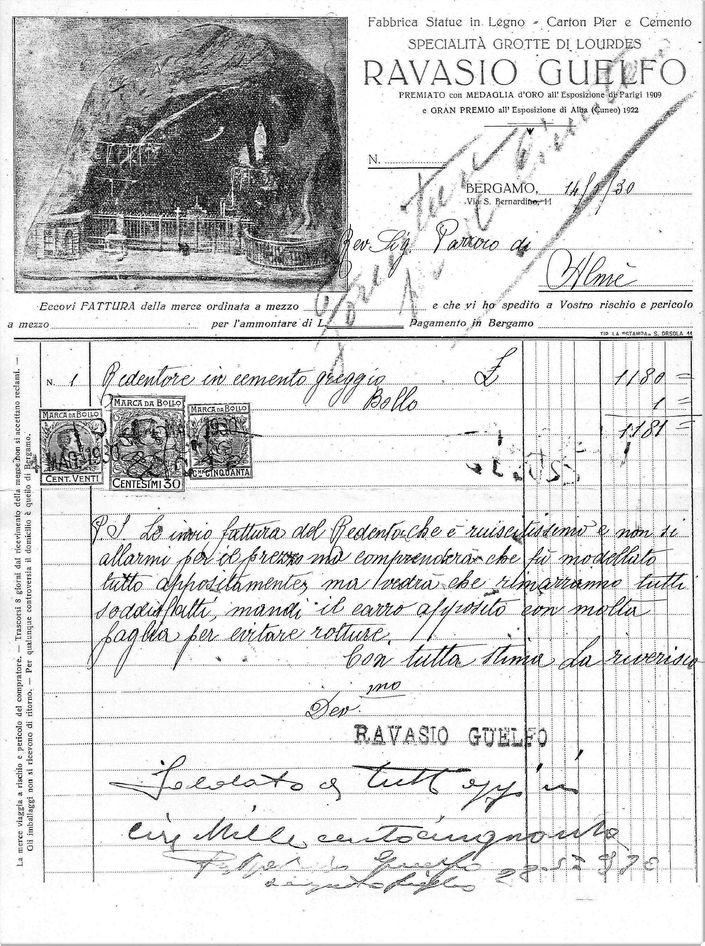 Fabbrica Statue in Legno - Carton Pier e Cemento
SPECIALITÀ GROTTE DI LOURDES
RAVASIO GUELFO
PREMIATO con MEDAGLIA d'ORO all' Esposizione di Parigi 1909
e GRAN PREMIO all' Esposizione di Alba (Cuneo) 1922
N.
BERGAMO, 14/5/30
Via S. Bernardino, 11
Rev. Sig. Parroco di
Almè
Eccovi FATTURA della merce ordinata a mezzo e che vi ho spedito a Vostro rischio e pericolo
a mezzo per l'ammontare di L. Pagamento in Bergamo
TIP. LA "STAMPA" S. ORSOLA
N. 1 Redentore in cemento greggio £ 1180 =
Bollo 1 =
1181 =
MARCA DA BOLLO
CENT. VENTI
MARCA DA BOLLO
CENTESIMI 30
MARCA DA BOLLO
CMI CINQUANTA
P.S. Le invio fattura del Redentore che è riuscitissimo e non si
allarmi per il prezzo ma comprenderà che fù modellato
tutto appositamente, ma vedrà che rimarranno tutti
soddisfatti, mandi il carro apposito con molta
paglia per evitare rotture.
Con tutta stima La riverisco
Dev.mo
RAVASIO GUELFO
Saldato a tutt'oggi in
Lire Mille centocinquanta
Guelfo
La merce viaggia a rischio e pericolo del compratore. — Trascorsi 8 giorni dal ricevimento della merce non si accettano reclami. —
Gli imballaggi non si ricevono di ritorno. — Per qualunque controversia il domicilio è quello di Bergamo.